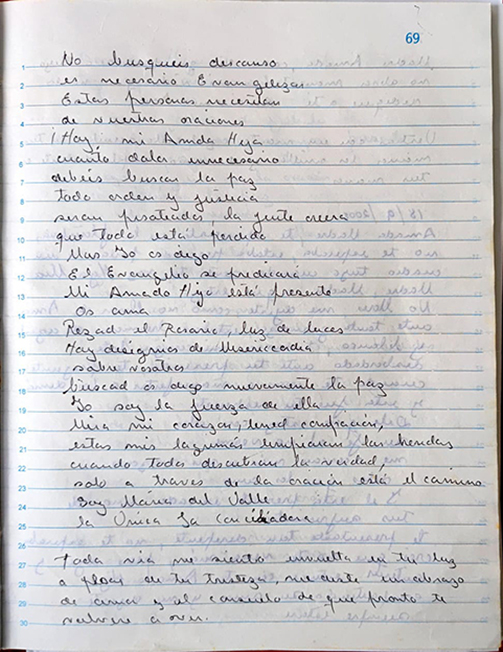 69
No busqueis descanso
es necesario Evangelizar
Estas personas necesitan
de vuestras oraciones
¡Hay, mi Amada Hija
cuanto dolor innecesario
debéis buscar la paz
todo orden y justicia
seran pisoteados, la gente creera
que todo está perdido
Mas Yo os digo
El Evangelio se predicará
Mi Amado Hijo está presente
Os ama
Rezad el Rosario, luz de luces
Hay designios de Misericordia
sobre vosotros
buscad os digo nuevamente la paz
Yo soy la fuerza de ella
Mira mi corazon, tened confianza,
estas mis lagrimas limpiaran las heridas
cuando todos descubran la verdad,
solo a traves de la oración está el camino
Soy Maria del Valle
la Unica La Conciliadora
Toda via me siento envuelta en tu luz
a pesar de tu tristeza me diste un abrazo
de amor y el consuelo de que pronto te
volvere a ver.